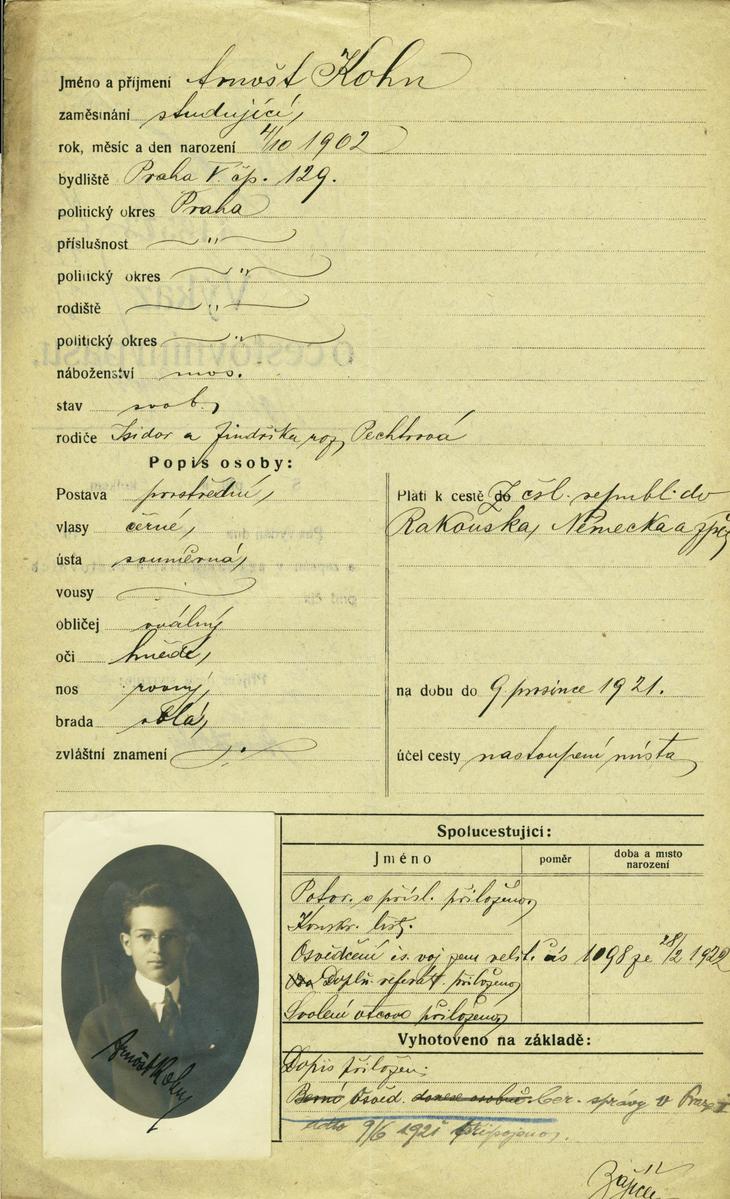 Jméno a příjmení Arnošt Kohn
zaměstnání studující,
rok, měsíc a den narození 4/10 1902
bydliště Praha V. čp. 129.
politický okres Praha
příslušnost "
politický okres "
rodiště "
politický okres "
náboženství mos.
stav svob.,
rodiče Isidor a Jindřiška roz. Pechtrová
Popis osoby:
Postava prostřední,
vlasy černé,
ústa souměrná,
vousy
obličej oválný
oči hnědé,
nos rovný,
brada oblá,
zvláštní znamení
Platí k cestě do Z čsl. republ. do
Rakouska, Německa a zpět
na dobu do 9 prosince 1921.
účel cesty nastoupení místa
Spolucestující:
Jméno poměr doba a místo
narození
Potvr. o přísl. přiloženo
Konskr. list.
Osvědčení zem. velit. čís 1098 ze 28/2 1922
Doplň. referát. přiloženo
Svolení otcovo přiloženo
Vyhotoveno na základě:
Dopis přiložen.
Berní Osvěd. donese osobně. ber. správy v Praze I
dtto 9/6 1921 připojeno.
Arnošt Kohn